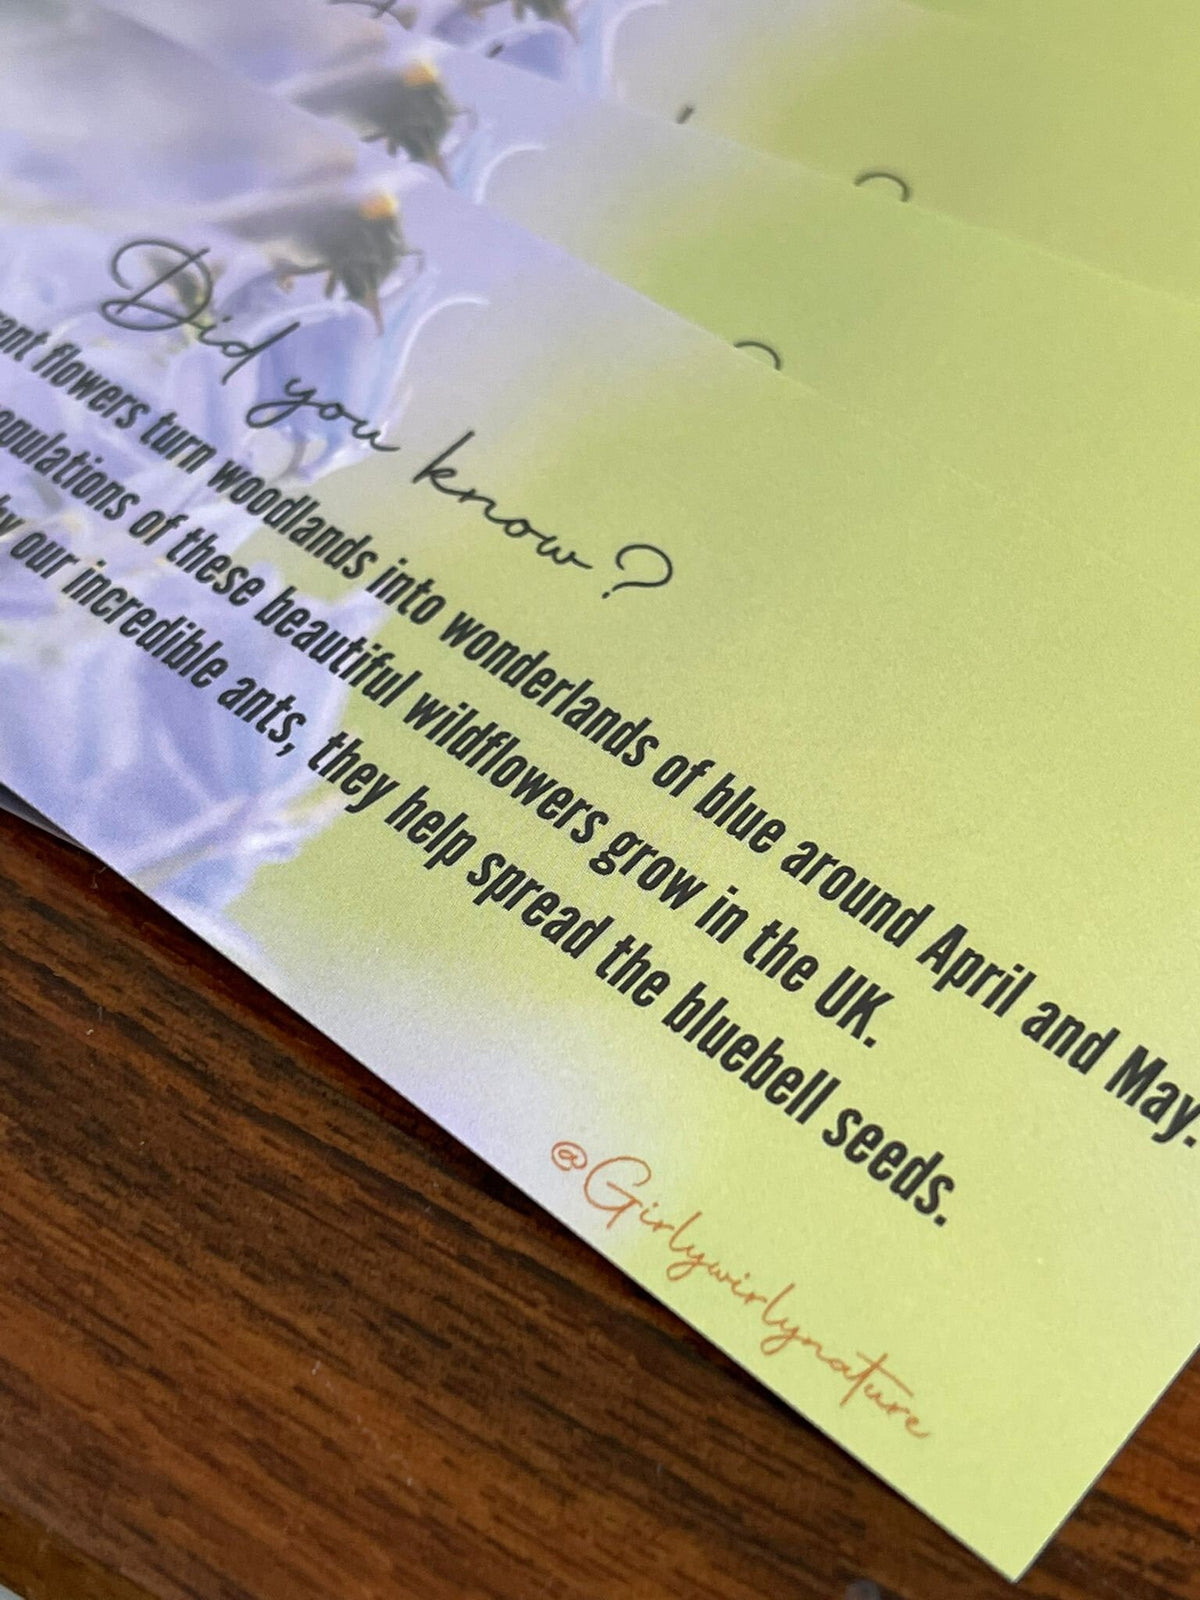 Did you know?
flowers turn woodlands into wonderlands of blue around April and May.
of these beautiful wildflowers grow in the UK.
our incredible ants, they help spread the bluebell seeds.
@Girlywirlynature